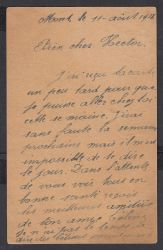 Mont le 11 août 19
Bien cher Hector.
J'ai reçu ta carte
un peu tard pour que
je puisse aller chez toi
cette semaine. J'irai
sans faute la semaine
prochaine mais il m'est
impossible de te dire
le jour. Dans l'attente
de vous voir tous en
bonne santé reçois
les meilleures amitiés
de ton ami
je n'ai pas le temps